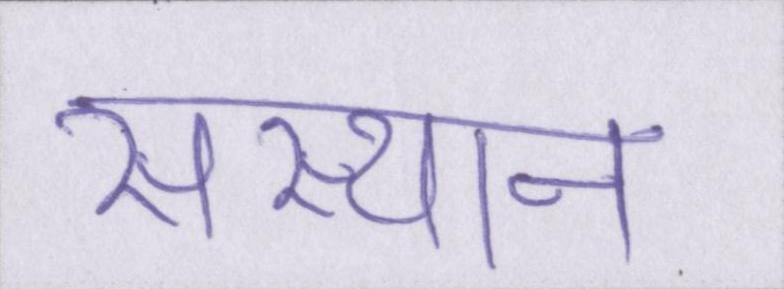 सस्थान